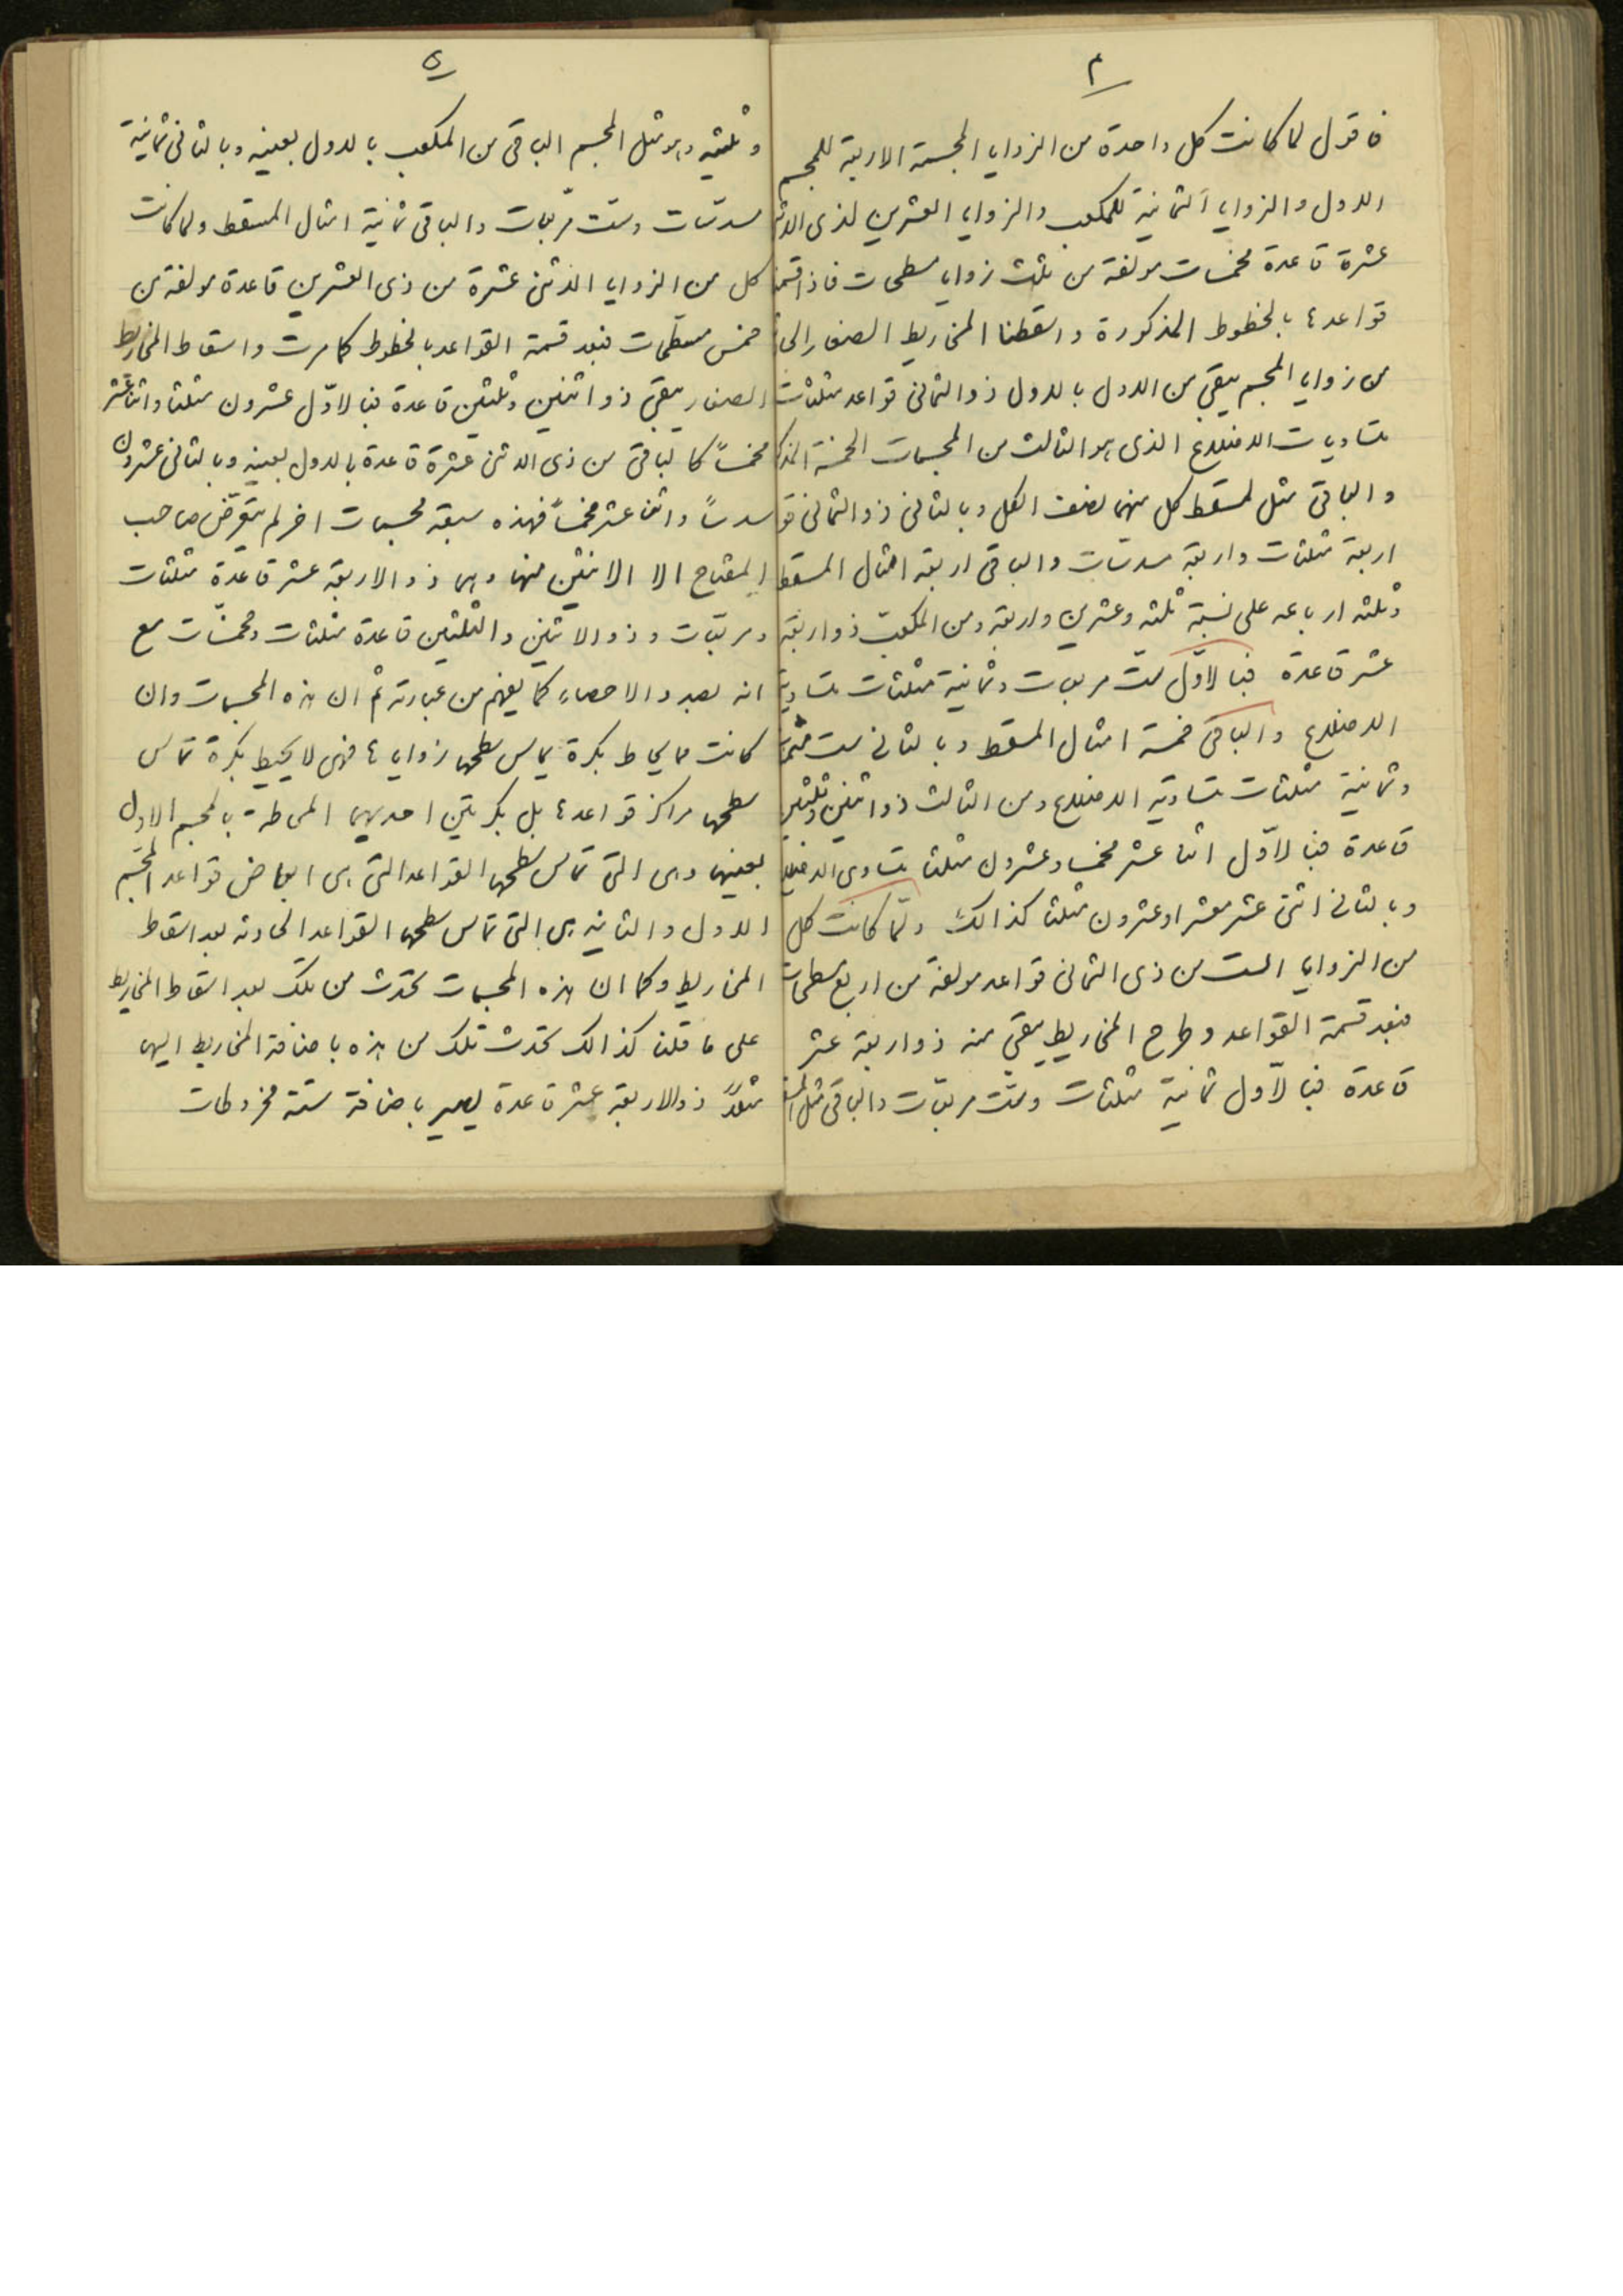 ۴
فاقول لما كانت كل واحدة من الزوايا المجسمة الاربعة للمجسم
الاول والزوايا الثمانية للمكعب والزوايا العشرين لذى الاثنى
عشرة قاعدة مخمسات مولفة من ثلث زوايا مسطحات فاذا قسمنا
قواعدها بالخطوط المذكورة واسقطنا المخاريط الصغار
من زوايا المجسم يبقى من الاول بالاول ذو الثمانى قواعد مثلثات
متساويات الاضلاع الذى هو الثالث من المجسمات الخمسة
والباقى مثل المسقط كل منهما نصف الكل وبالثانى ذو الثمانى
اربعة مثلثات واربعة مسدسات والباقى اربعة امثال المسقط
وثلثه ارباعه على نسبة ثلثه وعشرين واربعه ومن المكعب ذو اربعة
عشر قاعدة فبالاوّل ست مربعات وثمانية مثلثات متساوية
الاضلاع والباقى خمسة امثال المسقط وبالثانى ست مثمنات
وثمانية مثلثات متساوية الاضلاع ومن الثالث ذو اثنين وثلثين
قاعدة فبالاوّل اثنا عشر مخمسا وعشرون مثلثا متساوى الاضلاع
وبالثانى اثنى عشر معشرا وعشرون مثلثا كذالك ولمّا كانت كل
من الزوايا الست من ذى الثمانى قواعد مولفة من اربع مسطحات
فبعد قسمة القواعد وطرح المخاريط يبقى منه ذو اربعة عشر
قاعدة فبالاوّل ثمانية مثلثات وستّ مربعات والباقى مثل
۵
وثلثيه وهو مثل المجسم الباقى من المكعب بالاول بعينه وبالثانى ثمانية
مسدسات وستّ مربعات والباقى ثمانية امثال المسقط ولما كانت
كل من الزوايا الاثنى عشرة من ذى العشرين قاعدة مولفة من
خمس مسطحات فبعد قسمة القواعد بالخطوط كما مرت واسقاط المخاريط
الصغار يبقى ذو اثنين وثلثين قاعدة فبالاوّل عشرون مثلثا واثنا عشر
مخمساً كالباقى من ذى الاثنى عشرة قاعدة بالاول بعينه وبالثانى عشرون
مسدساً واثنا عشر مخمساً فهذه سبعة مجسمات اخر لم يتعرّض صاحب
المفتاح الا لاثنين منها وهما ذو الاربعة عشر قاعدة مثلثات
ومربعات وذو الاثنين والثلثين قاعدة مثلثات ومخمسات مع
انه بصدد الاحصاء كما يفهم من عبارته ثم ان هذه المجسمات وان
كانت مما يحاط بكرة يماس سطحها زواياها فهى لا يحيط بكرة تماس
سطحها مراكز قواعدها بل بكرتين احديهما المحاطة بالمجسم الاول
بعينها وهى التى تماس سطحها القواعد التى هى ابعاض قواعد المجسم
الاول والثانيه هى التى تماس سطحها القواعد الحادثه بعد اسقاط
المخاريط وكما ان هذه المجسمات تحدث من تلك بعد اسقاط المخاريط
على ما قلنا كذالك تحدث تلك من هذه باضافة المخاريط اليها
مثلاً ذوالاربعة عشر قاعدة يصير باضافة ستة مخروطات